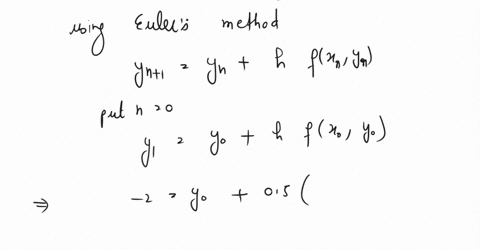 using Euler's method
yn+1 = yn + h f(xn, yn)
put n = 0
y1 = y0 + h f(x0, y0)
⇒ -2 = y0 + 0.5 (